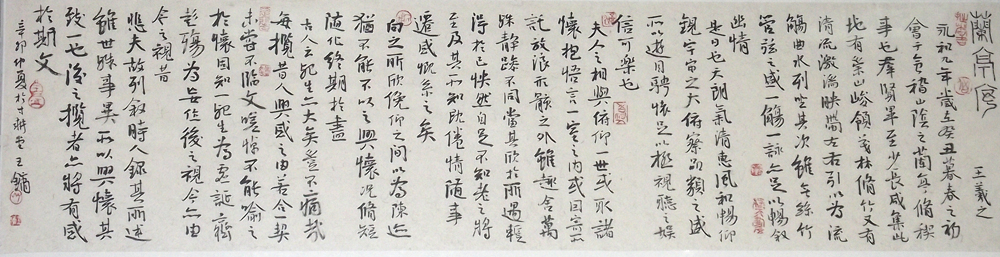 蘭亭
王羲之
永和九年歲在癸丑暮春之初
會于會稽山陰之蘭亭脩禊
事也羣賢畢至少長咸集此
地有崇山峻領茂林脩竹又有
清流激湍映帶左右引以為流
觴曲水列坐其次雖無絲竹
管弦之盛一觴一詠亦足以暢敘
幽情
是日也天朗氣清惠風和暢仰
觀宇宙之大俯察品類之盛
所以遊目騁懷足以極視聽之娛
信可樂也
夫人之相與俯仰一世或取諸
懷抱悟言一室之內或因寄所
託放浪形骸之外雖趣舍萬
殊靜躁不同當其欣於所遇暫
得於己快然自足不知老之將
至及其所之既倦情隨事
遷感慨係之矣
向之所欣俛仰之間以為陳迹
猶不能不以之興懷況脩短
隨化終期於盡
古人云死生亦大矣豈不痛哉
每攬昔人興感之由若合一契
未嘗不臨文嗟悼不能喻之
於懷固知一死生為虛誕齊
彭殤為妄作後之視今亦由
今之視昔
悲夫故列敘時人錄其所述
雖世殊事異所以興懷其
致一也後之攬者亦將有感
於斯文
辛卯仲夏於寸耕堂王鏞